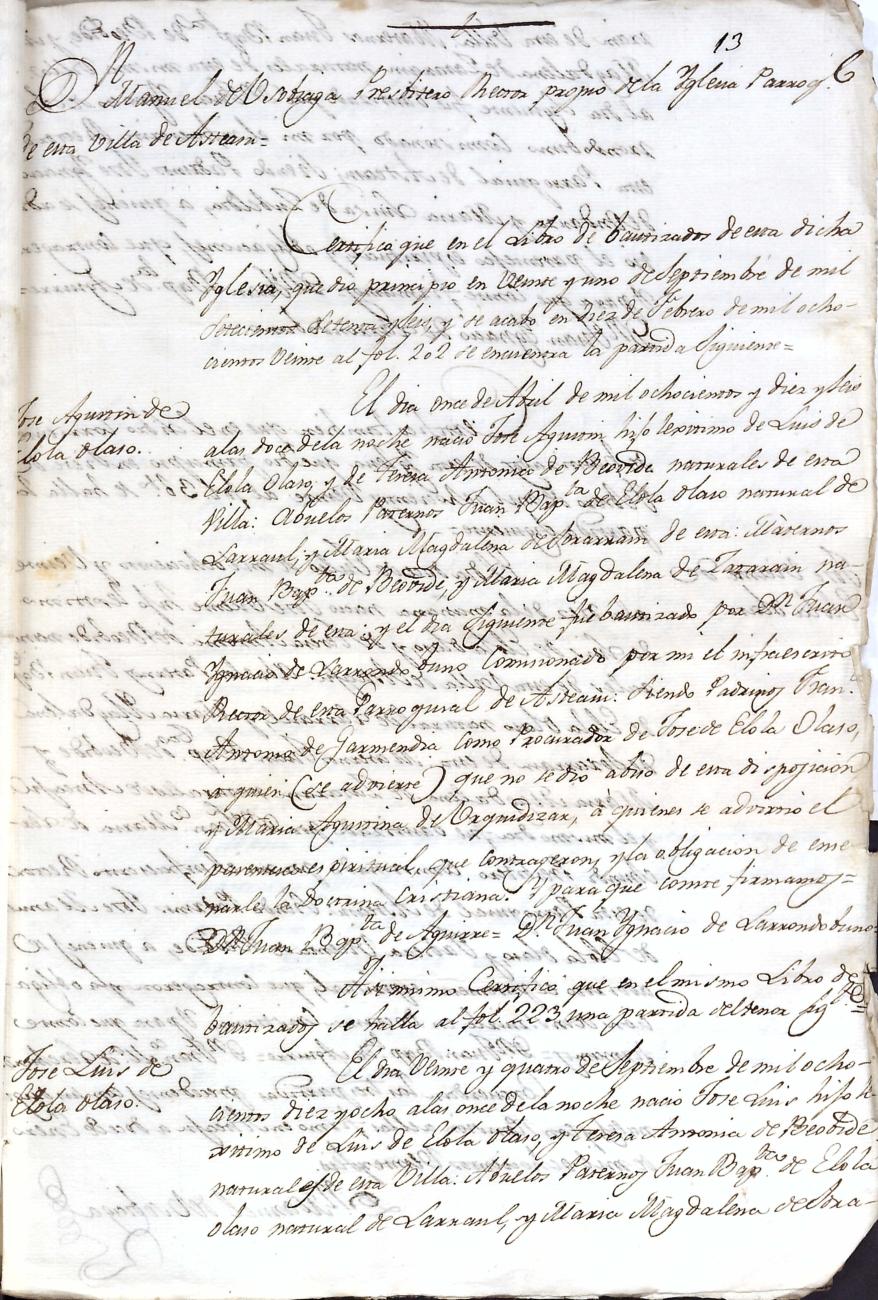 13
Dn Manuel de Presbitero Rector propio de la Yglesia Parroql.
de esta Villa de Asteasu=
Certifico que en el Libro de bautizados de esta dicha
Yglesia, que dio principio en Veinte y uno de Septiembre de mil
Setecientos Setenta y seis, y se acabó en diez de Febrero de mil ocho-
cientos Veinte al fol. 202 se encuentra la partida Siguiente=
Jose Agustin de
Elola olaso.
El dia once de Abril de mil ochocientos y diez y seis
a las doce de la noche nació Jose Agustin hijo lexitimo de Luis de
Elola Olaso, y de Teresa Antonia de Beovide naturales de esta
Villa: Abuelos Paternos Juan Bapta. de Elola olaso natural de
Larraul, y Maria Magdalena de de esta: Maternos
Juan Bapta. de Beovide, y Maria Magdalena de na-
turales de esta: y el dia siguiente fue bautizado por Dn Juan
Ygnacio de Larrondobuno Comisionado por mi el infraescrito
Rector de esta Parroquial de Asteasu: Siendo Padrinos Franco.
Antonio de Garmendia como Procurador de Jose de Elola Olaso,
a quien (se advierte) que no se dio abiso de esta disposicion
y Maria Agustina de Urquidizar, á quienes se advirtio el
parentesco espiritual, que contrageron, y la obligacion de ense-
ñarle la Doctrina Cristiana. Y para que conste firmamos=
Dn Juan Bapta. de Aguirre= Dn Juan Ygnacio de Larrondobuno
Asi mismo Certifico que en el mismo Libro de
bautizados se halla al fol. 223 una partida del tenor sigte.=
Jose Luis de
Elola olaso.
El dia Veinte y quatro de Septiembre de mil ocho-
cientos diez y ocho a las once de la noche nacio Jose Luis hijo le-
xitimo de Luis de Elola olaso, y Teresa Antonia de Beovide
naturales de esta Villa: Abuelos Paternos Juan Bapta. de Elola
olaso natural de Larraul, y Maria Magdalena de